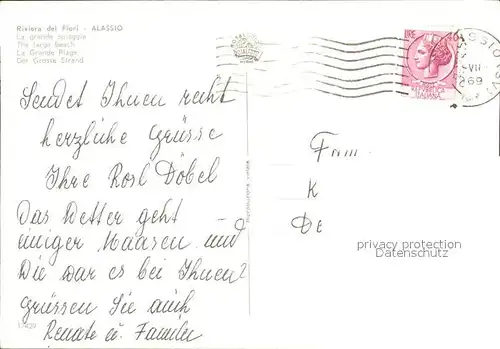 Riviera dei Fiori - ALASSIO
La grande spiaggia
The large beach
La Grande Plage
Der Grosse Strand
LIRE 40
REPVBBLICA
ITALIANA
ALASSIO
VII
1969
Sendet Ihnen recht
herzliche Grüsse
Ihre Rosl Döbel
Das Wetter geht
einiger Maasen und
Wie war es bei Ihnen?
grüssen Sie auch
Renate u. Familie
Fam
K
DE
privacy protection
Datenschutz